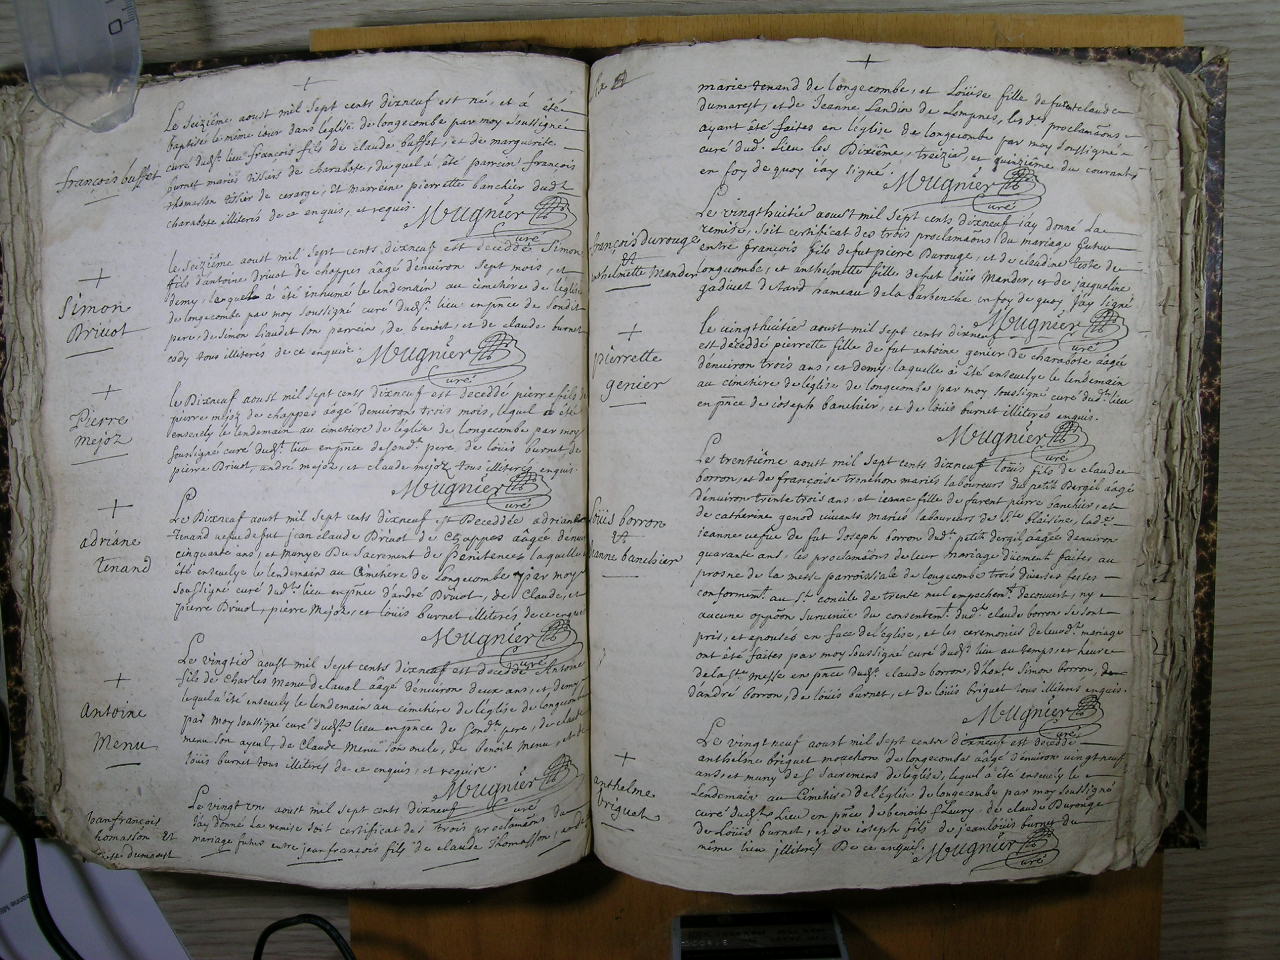 +
françois buffet
Le seizième aoust mil sept cents dixneuf est né, et à été
baptisé le même iour dans l'église de longecombe par moy soussigné
curé dudt. lieu françois fils de claude buffet, et de marguerite
burnet mariés de charabote, duquel à été parrein françois
thomasson de cerarge, et marreine pierrette banchier dudt.
charabote illiterés de ce enquis, et requis. Mugnier
curé
+
Simon
Druot
le seizième aoust mil sept cents dixneuf est deceddé Simon
fils d'antoine Druot de chappes aàgé d'environ sept mois, et
demy, lequel à été inhumé le lendemain au cimetière de l'église
de longecombe par moy soussigné curé dudt. lieu en pnce de sondit
pere, de Simon Liaudet son parrein, de benoit, et de claude burnet
tous illiterés de ce enquis. Mugnier
curé
+
Pierre
mejoz
le Dixneuf aoust mil sept cents dixneuf est deceddé pierre fils de
pierre mejoz de chappes aàgé denviron trois mois, lequel à été
ensevely le lendemain au cimetière de l'église de longecombe par moy
soussigné curé dudt. lieu en pnce de sondt. pere, de loüis burnet de
pierre Druot, andré mejoz, et claude mejoz tous illiterés enquis.
Mugnier
curé
+
adriane
tenand
Le Dixneuf aoust mil sept cents dixneuf est Deceddée adriane
tenand vefue de fut jean claude Druot de Chappes aàgée denviron
cinquante ans, et munye Du sacrement de penitence, laquelle à
été ensevelye le lendemain au Cimetière de Longecombe par moy
soussigné curé dudt. lieu en pnce d'andré Druot, de Claude, et
pierre Druot, pierre Mejoz, et loüis burnet illiterés de ce enquis
Mugnier
curé
+
antoine
Menu
Le vingtiè aoust mil sept cents dixneuf est deceddé Antoine
fils de Charles Menu de laval aàgé denviron deux ans, et demy
lequel à été ensevely le lendemain au cimetière de l'église de longecombe
par moy soussigné curé dudt. lieu en pnce de sondt. pere, de claude
menu son ayeul, de claude Menu son oncle, de benoit Menu, et de
loüis burnet tous illiterés de ce enquis, et requise.
Mugnier
curé
Jean françois
thomasson et
loüise dumarest
Le vingt un aoust mil sept cents dixneuf
j'ay donné la remise soit certificat des trois proclamaõns du
mariage futur entre jean françois fils de claude Thomasson, et de
+
marie tenand de longecombe, et Loüise fille de fut claude
dumarest, et de Jeanne Landin de Lompnes, les ds. proclamaõns
ayant été faites en l'église de longecombe par moy soussigné
curé dudt. Lieu les Dixième, treiziè, et quinzième du courant,
en foy de quoy j'ay signé. Mugnier
curé
françois Durouge
et
anthelmette Mander
Le vingthuitiè aoust mil sept cents dixneuf j'ay donné La
remise, soit certificat des trois proclamaõns du mariage futur
entre françois fils de fut pierre Durouge, et de claudine teste de
longecombe, et anthelmette fille de fut loüis Mander, et de jacqueline
gadiuet de hard rameau de la barbenche en foy de quoy j'ay signé
Mugnier
curé
+
pierrette
genier
Le vingthuitiè aoust mil sept cents dixneuf
est deceddé pierrette fille de fut antoine genier de charabote aàgée
denviron trois ans, et demy, laquelle à été ensevelye le lendemain
au cimetière de l'église de longecombe par moy soussigné curé dudt. lieu
en pnce de ioseph banchier, et de loüis burnet illiterés enquis.
Mugnier
curé
loüis borron
et
Jeanne banchier
Le trentième aoust mil sept cents dixneuf loüis fils de claude
borron, et de françoise tronchon mariés laboureurs du petit Dergil aàgé
denviron trente trois ans, et ieanne fille de furent pierre banchier, et
de catherine genod vivants mariés laboureurs de Ste. blaisine, ladte.
ieanne vefue de fut Joseph borron dudt. petit dergil aàgée denviron
quarante ans, les proclamaõns de leur mariage düement faites au
prosne de la messe parroissiale de longecombe trois diverses festes
conformemt. au St. concile de trente nul empechemt. decouvert, ny
aucune oppoõn survenüe du consentemt. dudt. claude borron se sont
pris, et epousés en face de l'église, et les ceremonies de leurdt. mariage
ont été faites par moy soussigné curé dudt. lieu au temps, et heure
de la Ste. messe en pnce dudt. claude borron, d'hont. Simon borron,
d'andré borron, de loüis burnet, et de loüis briguet tous illiterés enquis.
Mugnier
curé
+
anthelme
briguet
Le vingt neuf aoust mil sept cents dixneuf est deceddé
anthelme briguet de longecombe aàgé d'environ vingt neuf
ans, et muny des sacremens de l'église, lequel à été ensevely le
Lendemain au Cimetière de l'église de longecombe par moy soussigné
curé dudt. Lieu en pnce de benoit fleury, de claude Durouge
de Loüis burnet, et de ioseph fils de jean loüis burnet du
même lieu illiterés De ce enquis. Mugnier
curé